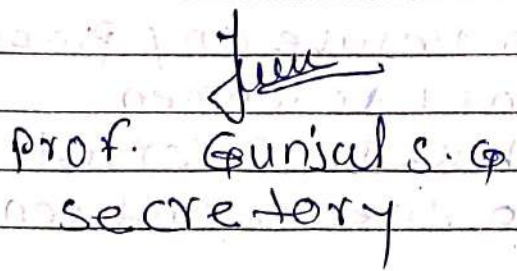 prof. Gunjal s. G
secretory